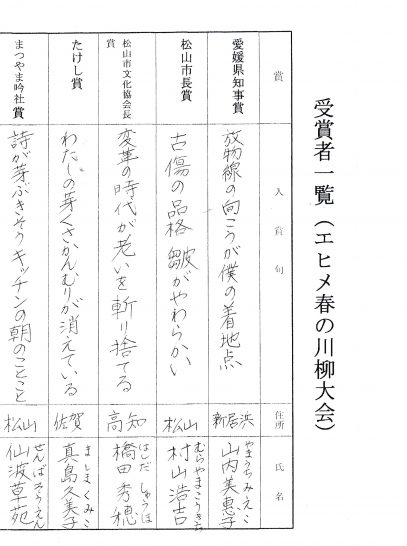 受賞者一覧(エヒメ春の川柳大会)
賞 入賞句 住所 氏名
愛媛県知事賞 放物線の向こうが僕の着地点 新居浜 山内美恵子 やまうちみえこ
松山市長賞 古傷の品格皺がやわらかい 松山 村山浩吉 むらやまこうきち
松山市文化協会長賞 変革の時代が老いを斬り捨てる 高知 橋田秀穂 はしだしゅうほ
たけし賞 わたしの芽くさかんむりが消えている 佐賀 真島久美子 ましまくみこ
まつやま吟社賞 詩が芽ぶきそうキッチンの朝のことこと 松山 仙波草苑 せんばそうえん